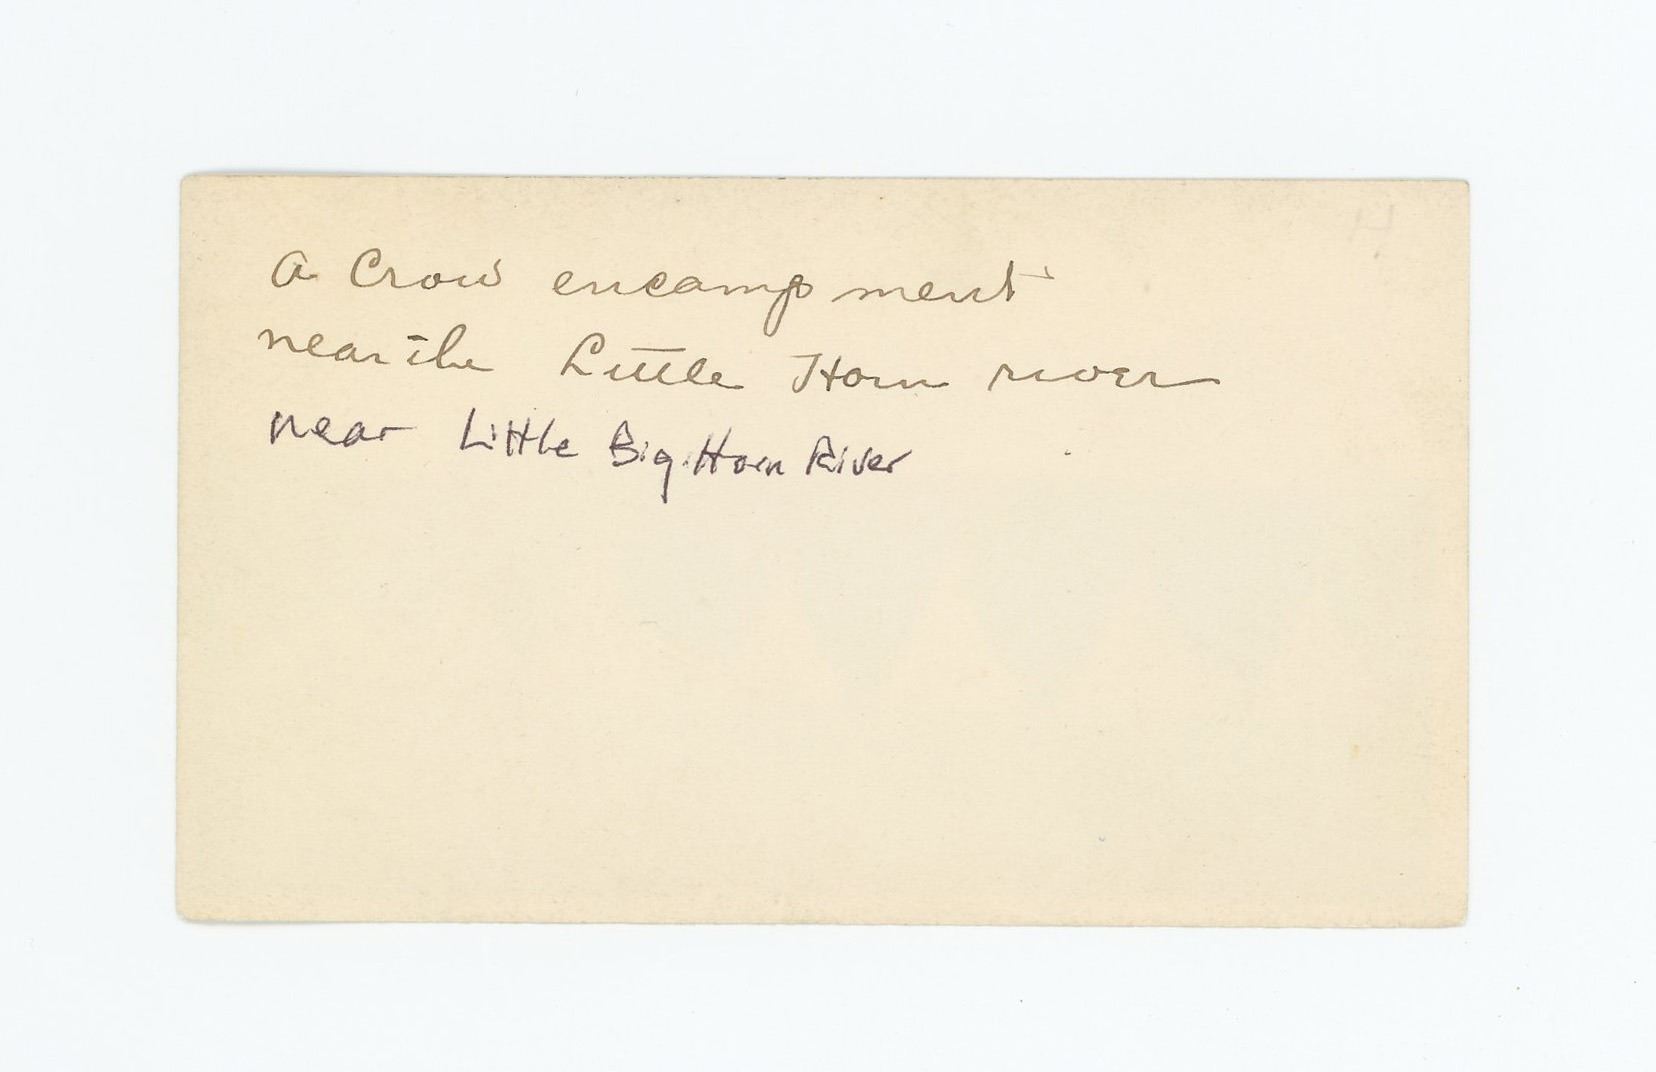 A Crow encampment
near the Little Horn river
near Little Big Horn River